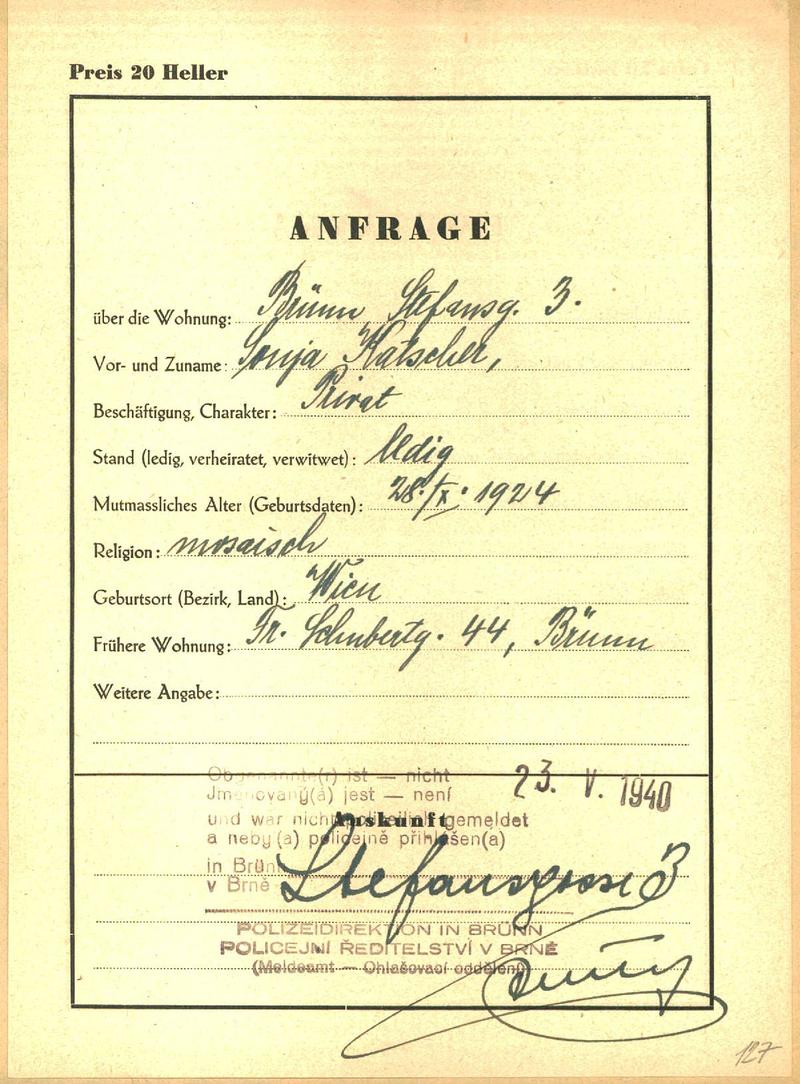 Preis 20 Heller
ANFRAGE
über die Wohnung: Brünn, Stefansg. 3.
Vor- und Zuname: Sonja Katscher,
Beschäftigung, Charakter: Privat
Stand (ledig, verheiratet, verwitwet): ledig
Mutmassliches Alter (Geburtsdaten): 28./X. 1924
Religion: mosaisch
Geburtsort (Bezirk, Land): Wien
Frühere Wohnung: Fr. Schubertg. 44, Brünn
Weitere Angabe:
Obgenannte(r) ist — nicht
23. V. 1940
Jmenovaný(á) jest — není
Auskunft
und war nicht polizeilich gemeldet
a neby (a) policejně přihlášen(a)
in Brünn
v Brně
Stefansgasse 3
POLIZEIDIREKTION IN BRÜNN
POLICEJNÍ ŘEDITELSTVÍ V BRNĚ
(Meldeamt — Ohlašovací oddělení)
127